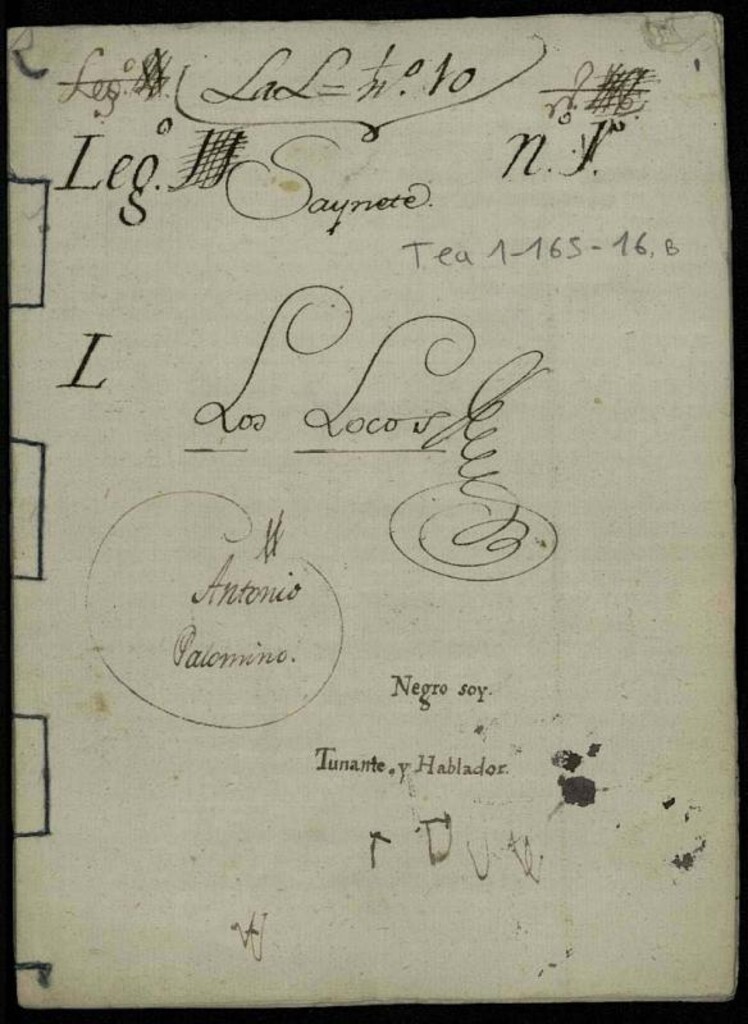 Leg.º
La L = n.º 10
n.º
Leg.º
n.º 1.º
Saynete.
Tea 1-165-16, B
L
Los Locos
Antonio
Palomino.
Negro soy.
Tunante. y Hablador.